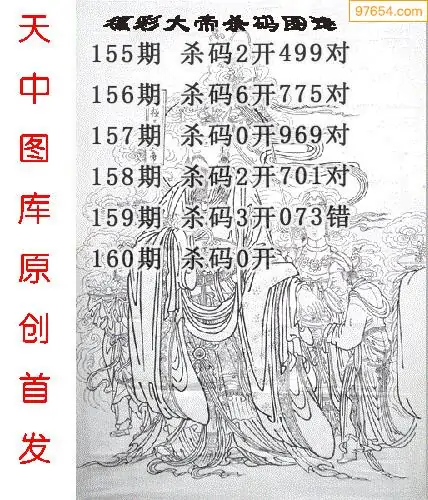 97654.com
福彩大帝杀码图谜
155期 杀码2开499对
156期 杀码6开775对
157期 杀码0开969对
158期 杀码2开701对
159期 杀码3开073错
160期 杀码0开
天中图库原创首发